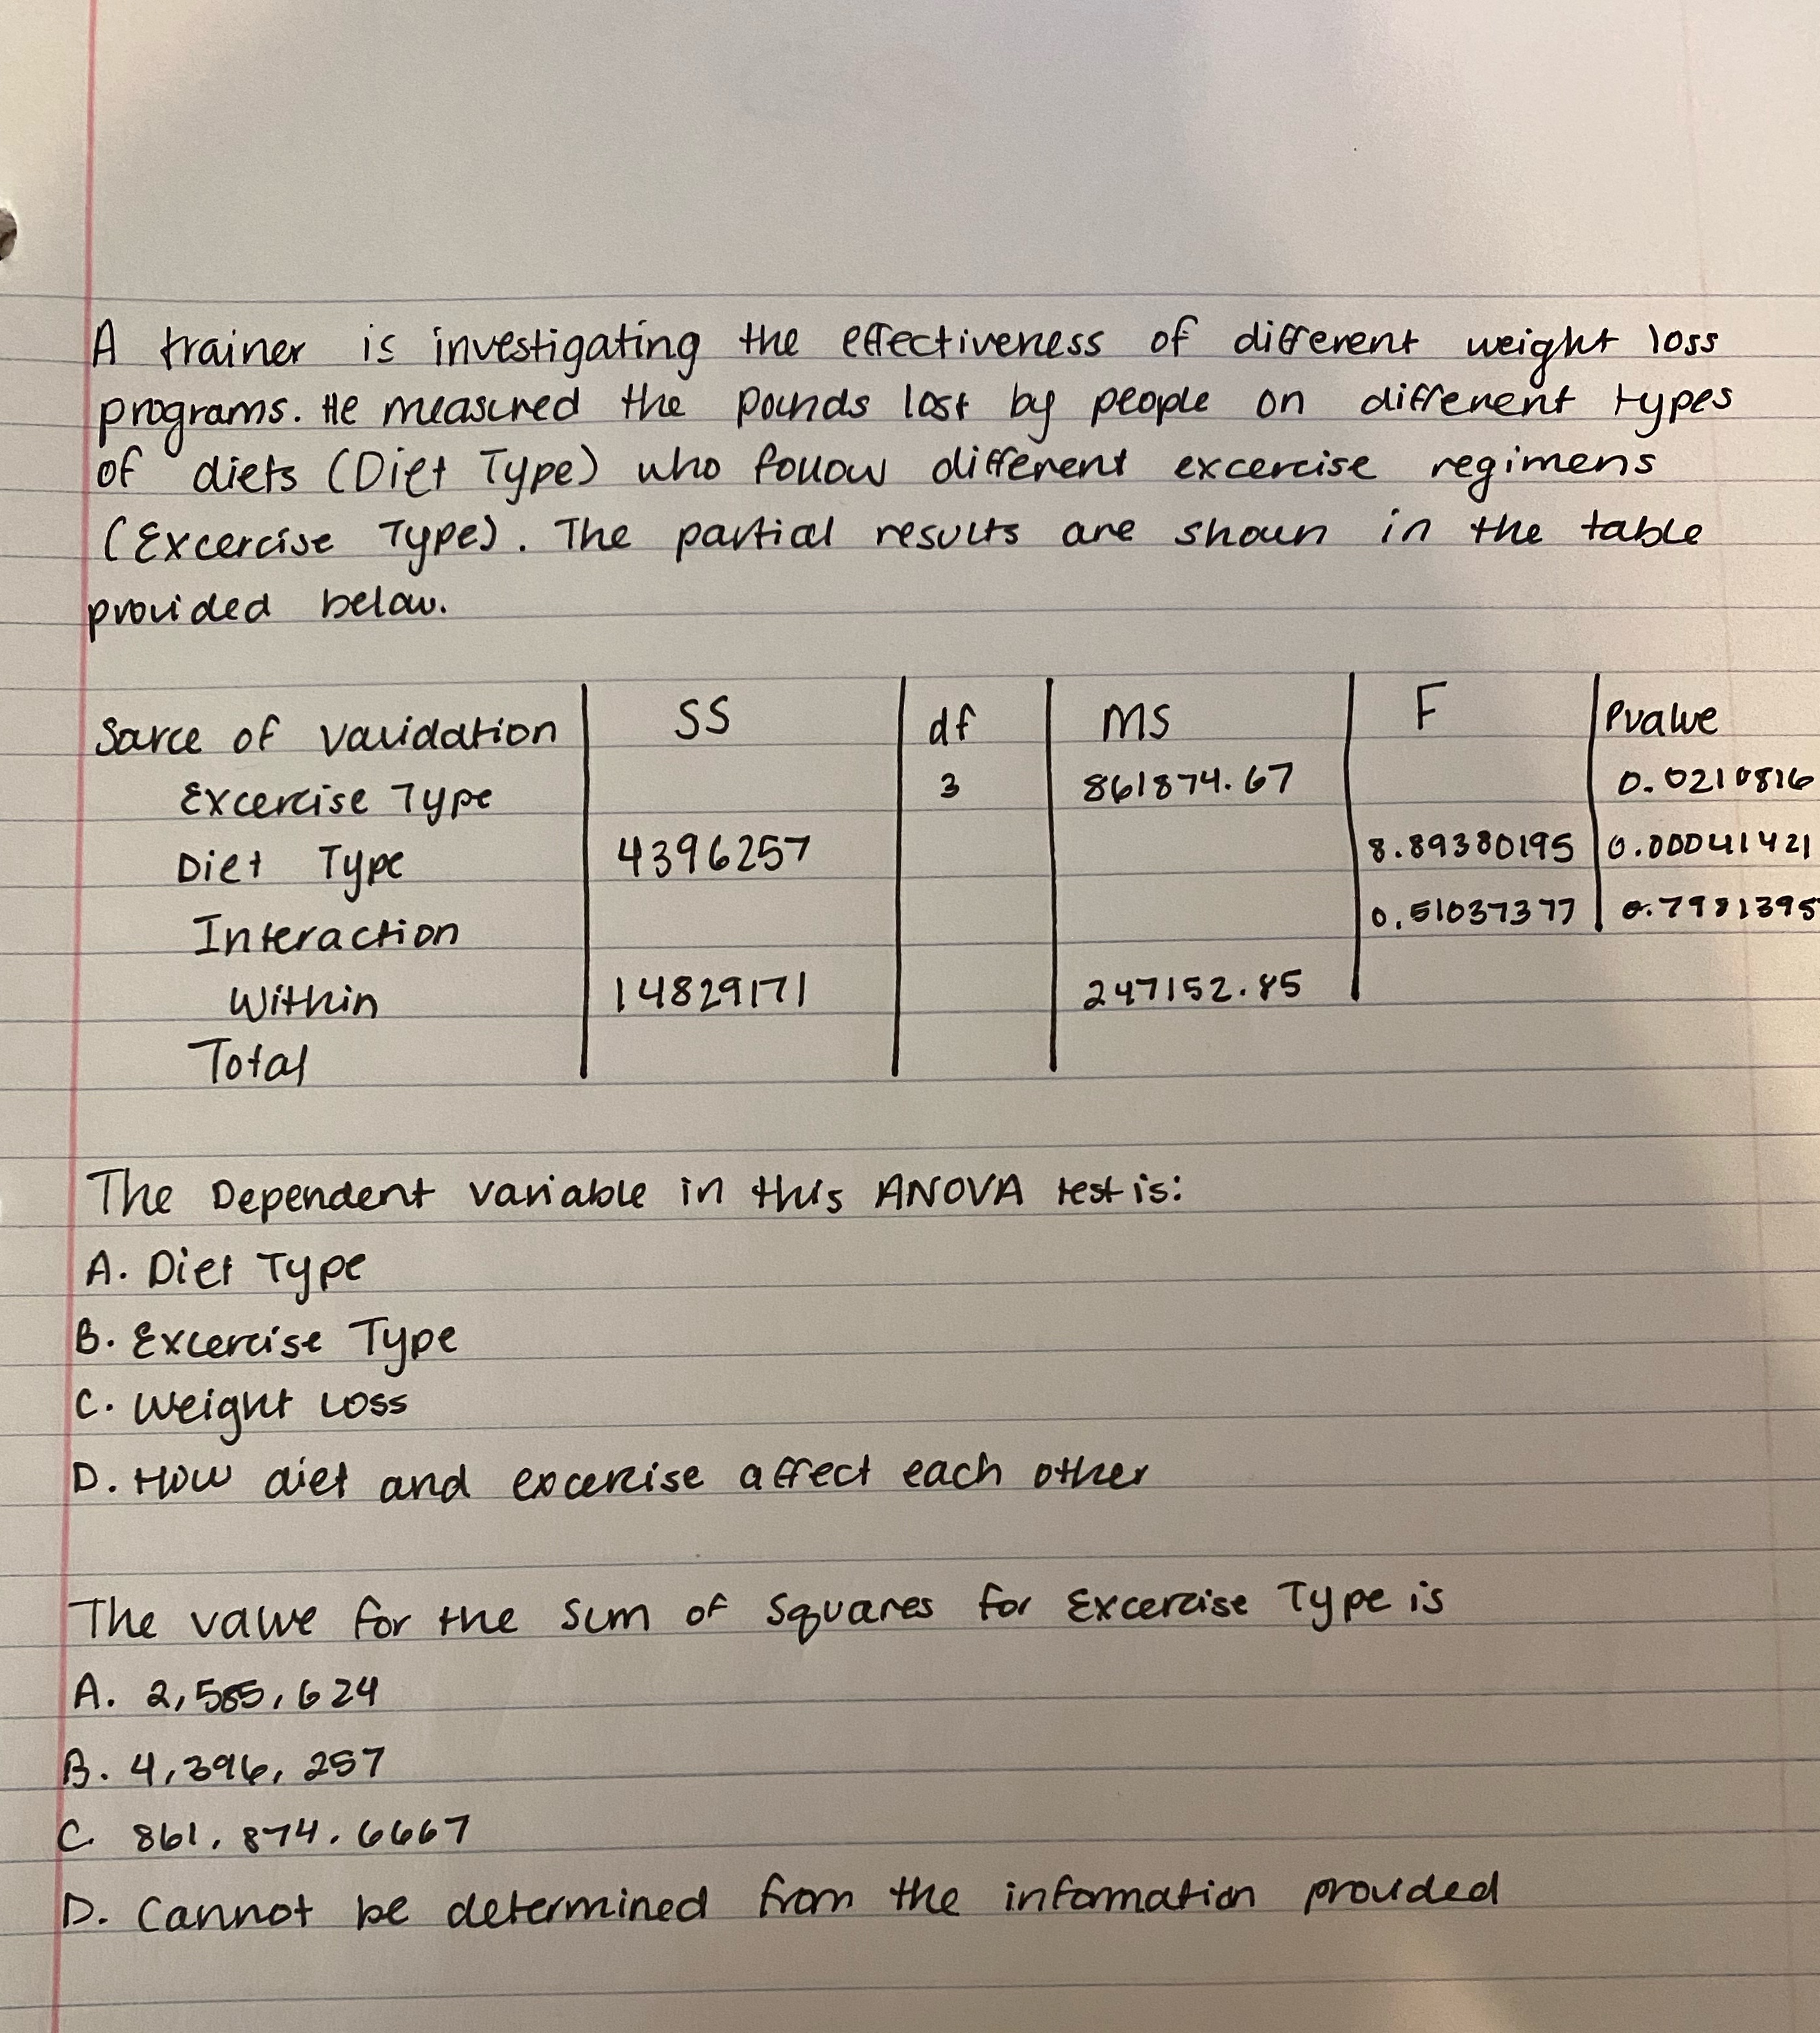 A trainer is investigating the effectiveness of different weight loss
programs. He measured the pounds lost by people on different types
of diets (Diet Type) who follow different excercise regimens
(Excercise Type). The partial results are shown in the table
provided below.
Sarce of variation SS df MS F Pvalue
Excercise Type 3 861874.67 0.0210816
Diet Type 4396257 8.89380195 0.00041421
Interaction 0.51037377 0.7981395
Within 14829171 247152.85
Total
The Dependent variable in this ANOVA test is:
A. Diet Type
B. Excercise Type
C. Weight Loss
D. How diet and excercise affect each other
The value for the sum of squares for Excercise Type is
A. 2,585,624
B. 4,396,257
C. 861,874.6667
D. Cannot be determined from the information provided